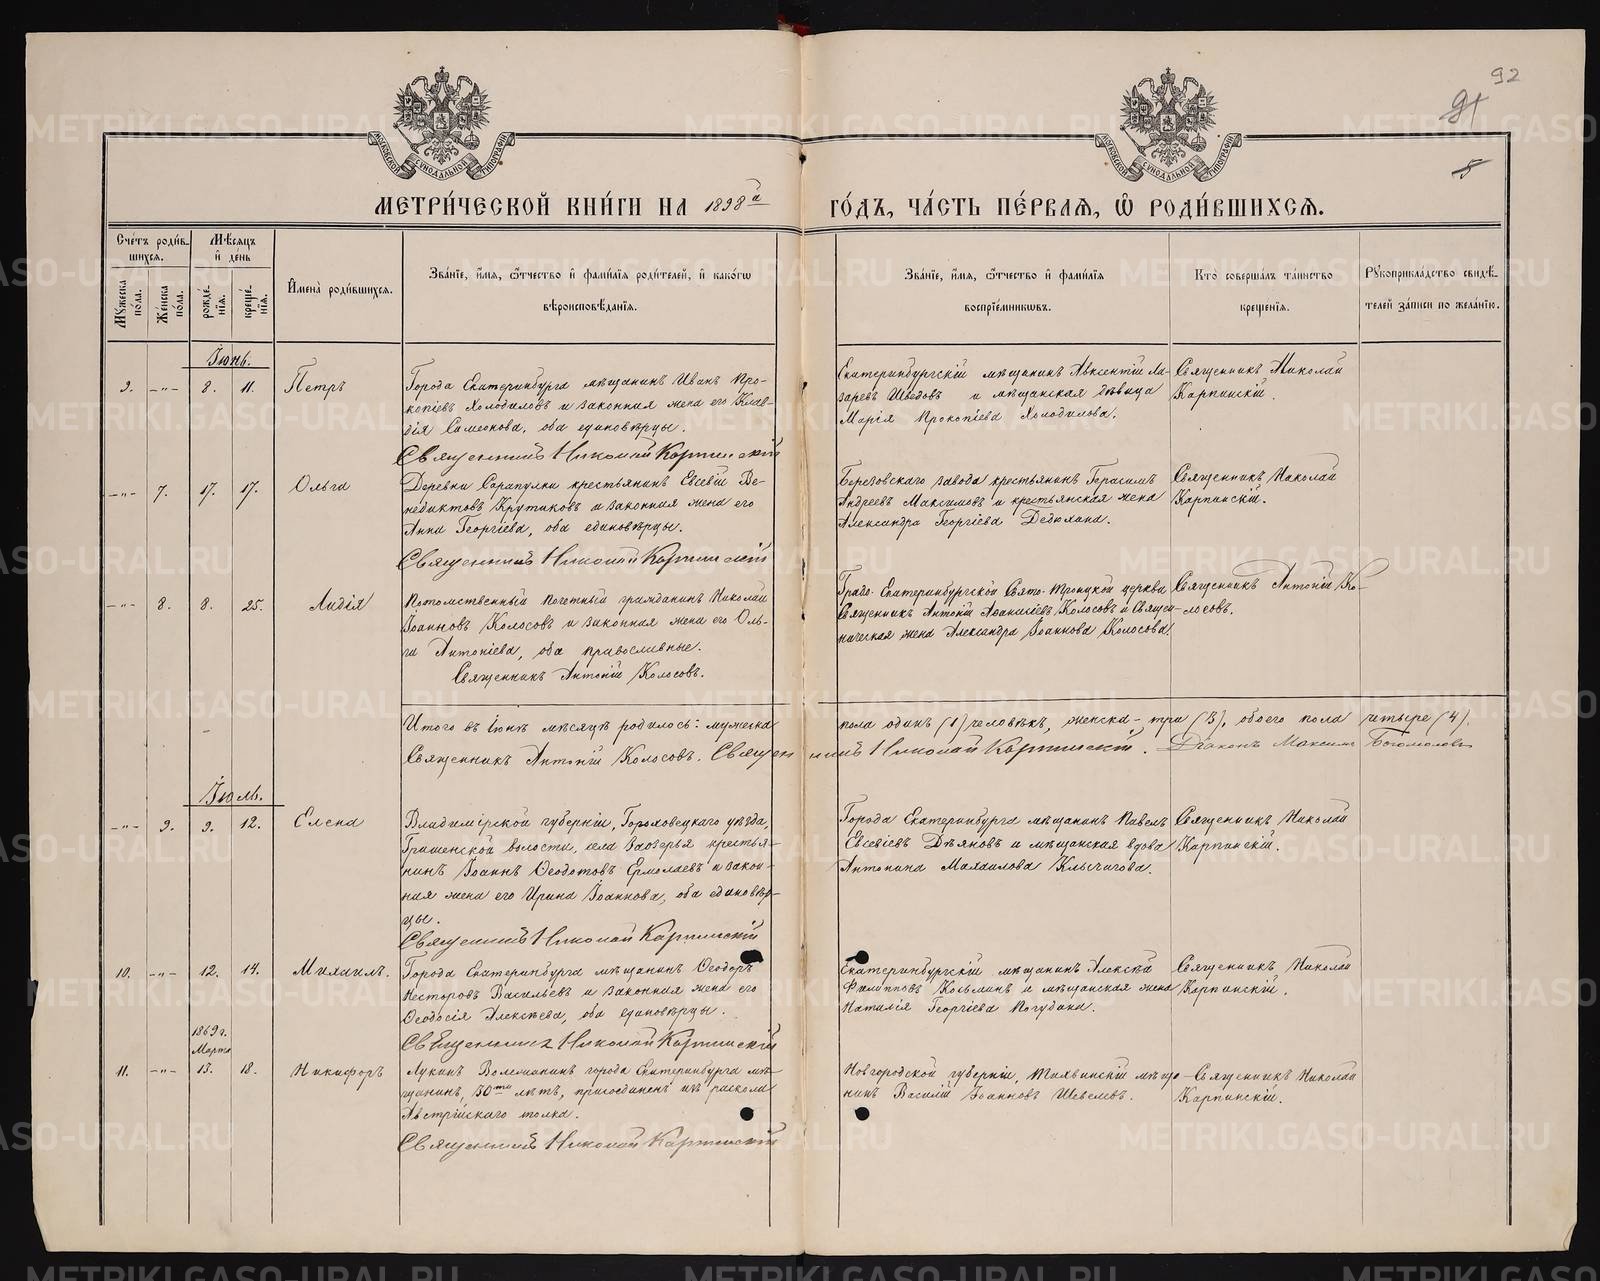 92
91
5
МЕТРИ́ЧЕСКОЙ КНИ́ГИ НА 1898й
ГО́ДЪ, ЧА́СТЬ ПЕ́РВАѦ, Ѽ РОДИ́ВШИХСѦ.
Сче́тъ роди́в-
шихсѧ.
Мѣ́сѧцъ
и҆ де́нь
Мꙋ́жеска по́ла.
Же́нска по́ла.
рожде́нїѧ.
креще́нїѧ.
И҆мена̀ роди́вшихсѧ.
Зва́нїе, и҆́мѧ, ѻ҆́тчество и҆ фами́лїѧ роди́телей, и҆ како́гѡ
вѣроисповѣ́данїѧ.
Зва́нїе, и҆́мѧ, ѻ҆́тчество и҆ фами́лїѧ
воспрїе́мникѡвъ.
Кто̀ соверша́лъ та́инство
креще́нїѧ.
Рꙋкоприкла́дство свидѣ́-
телей за́писи по жела́нїю.
Іюнь.
9. -"- 8. 11. Петръ
Города Екатеринбурга мѣщанинъ Иванъ Про-
копіевъ Холодиловъ и законная жена его Клав-
дія Симеонова, оба единовѣрцы.
Священникъ Николай Карпинскій
Екатеринбургскій мѣщанинъ Авксентій Ла-
заревъ Шведовъ и мѣщанская дѣвица
Марія Прокопіева Холодилова.
Священникъ Николай
Карпинскій.
-"- 7. 17. 17. Ольга
Деревни Сарапулки крестьянинъ Евсевій Ве-
недиктовъ Крутиковъ и законная жена его
Анна Георгіева, оба единовѣрцы.
Священникъ Николай Карпинскій
Березовскаго завода крестьянинъ Герасимъ
Андреевъ Максимовъ и крестьянская жена
Александра Георгіева Дедюхина.
Священникъ Николай
Карпинскій.
-"- 8. 8. 25. Лидія
Потомственный почетный гражданинъ Николай
Іоанновъ Колосовъ и законная жена его Оль-
га Антоніева, оба православные.
Священникъ Антоній Колосовъ.
Градо-Екатеринбургской Свято-Троицкой церкви
Священникъ Антоній Аѳанасіевъ Колосовъ и Священ-
ническая жена Александра Іоаннова Колосова.
Священникъ Антоній Ко-
лосовъ.
Итого въ Іюнѣ мѣсяцѣ родилось: мужеска
пола одинъ (1) человѣкъ, женска - три (3), обоего пола четыре (4).
Священникъ Антоній Колосовъ. Священникъ Николай Карпинскій. Діаконъ Максимъ Богомоловъ
Іюль.
-"- 9. 9. 12. Елена
Владимірской губерніи, Гороховецкаго уѣзда,
Гришенской волости, села Заозерья крестья-
нинъ Іоаннъ Ѳеодотовъ Ермолаевъ и закон-
ная жена его Ирина Іоаннова, оба единовѣр-
цы.
Священникъ Николай Карпинскій
Города Екатеринбурга мѣщанинъ Павелъ
Евсевіевъ Дѣяновъ и мѣщанская вдова
Антонина Михаилова Клычигова.
Священникъ Николай
Карпинскій.
10. -"- 12. 14. Михаилъ.
Города Екатеринбурга мѣщанинъ Ѳеодоръ
Несторовъ Васильевъ и законная жена его
Ѳеодосія Алексѣева, оба единовѣрцы.
Священникъ Николай Карпинскій
Екатеринбургскій мѣщанинъ Алексѣй
Филипповъ Косьминъ и мѣщанская жена
Наталія Георгіева Погудина.
Священникъ Николай
Карпинскій.
1869 г.
Марта
11. -"- 13. 18. Никифоръ
Лукинъ города Екатеринбурга мѣ-
щанинъ, 30ти лѣтъ, присоединенъ изъ раскола
Австрійскаго толка.
Священникъ Николай Карпинскій
Новгородской губерніи, Тихвинскій мѣща-
нинъ Василій Іоанновъ Шевелевъ.
Священникъ Николай
Карпинскій.